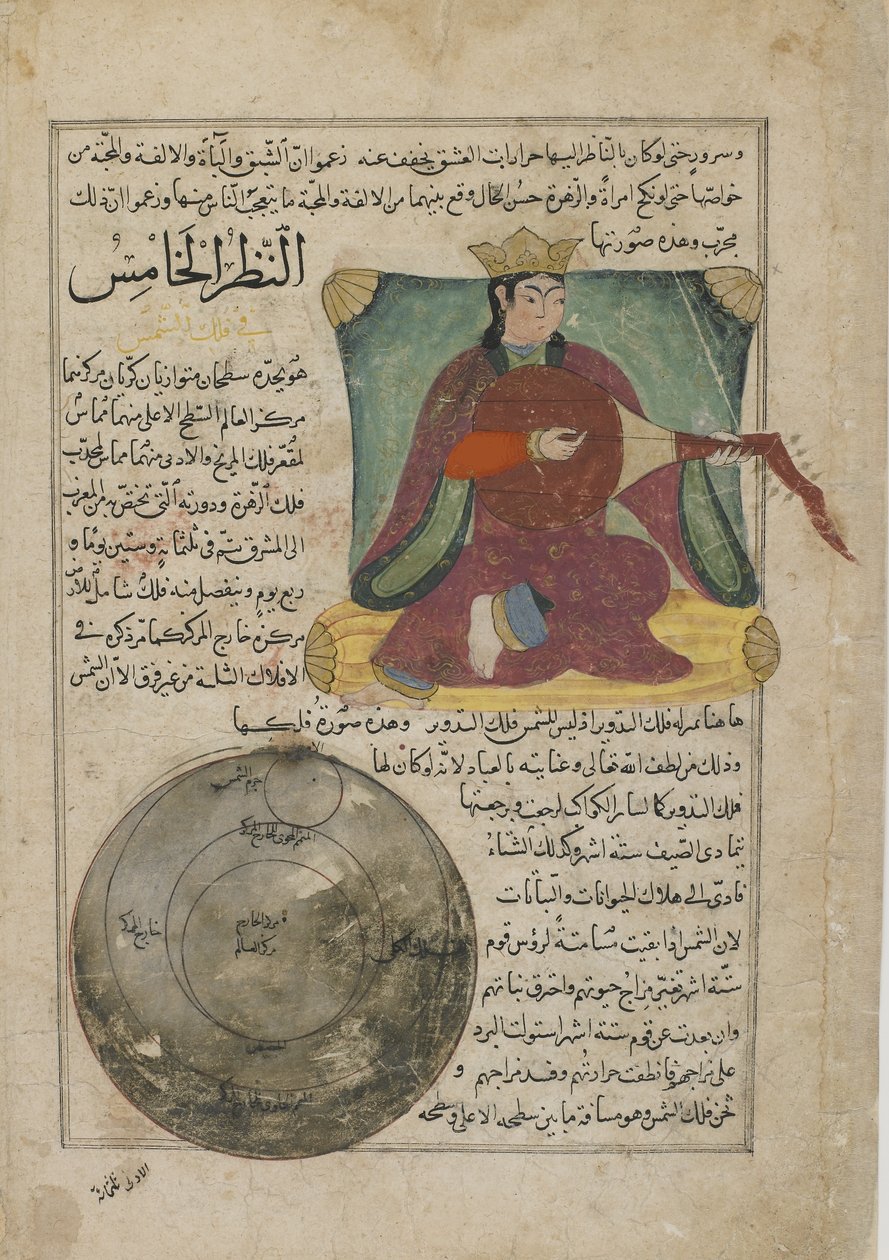 وسرورٍ حتى لو كان بالنّاظر اليها حرارات العشق يخفف عنه زعموا انّ الشّبق والبآءة والالفة والمحبّة من
خواصّها حتى لو نكح امراةً والزّهرة حسن الحال وقع بينهما من الالفة والمحبّة ما يتعجب النّاس منها وزعموا انّ ذلك
مجرّب وهذه صورتها
النّظر الخامس
في فلك الشّمس
هو يحدّه سطحان متوازيان كريّان مركزهما
مركز العالم السّطح الاعلى منهما مماسّ
لمقعّر فلك المريخ والادنى منهما مماسّ لمحدّب
فلك الزّهرة ودورته الّتي تختصّ به من المغرب
الى المشرق تتمّ في ثلثمائةٍ وستين يومًا و
ربع يومٍ وينفصل منه فلك شامل للارض
مركزه خارج المركز كما مرّ ذكره في
الافلاك الثلثة من غير فرق الا انّ الشمس
هاهنا بمنزلة فلك التدوير اذ ليس للشمس فلك التدوير وهذه صورة فلكها
وذلك من لطف الله تعالى وعنايته بالعباد لانّه لو كان لها
فلك التدوير كما لسائر الكواكب لرجعت وبرجعتها
يتمادى الصّيف ستة اشهر وكذلك الشتاءُ
فادّى الى هلاك الحيوانات والنّباتات
لان الشمس اذا بقيت مسامتةً لرؤس قوم
ستّة اشهر تغيّر مزاج حيوتهم واحترق نباتهم
وان بعدت عن قوم ستة اشهر استولت البرد
على مزاجهم فانطفت حرارتهم وفسد مزاجهم و
ثخن فلك الشمس وهو مسافة ما بين سطحه الاعلى وسطحه
جرم الشمس
المتمم المحوي للخارج المركز
خارج المركز
مركز الخارج
مركز العالم
الفلك الكلي
الحضيض
المتمم الحاوي للخارج المركز
الادنى ثلثمائة